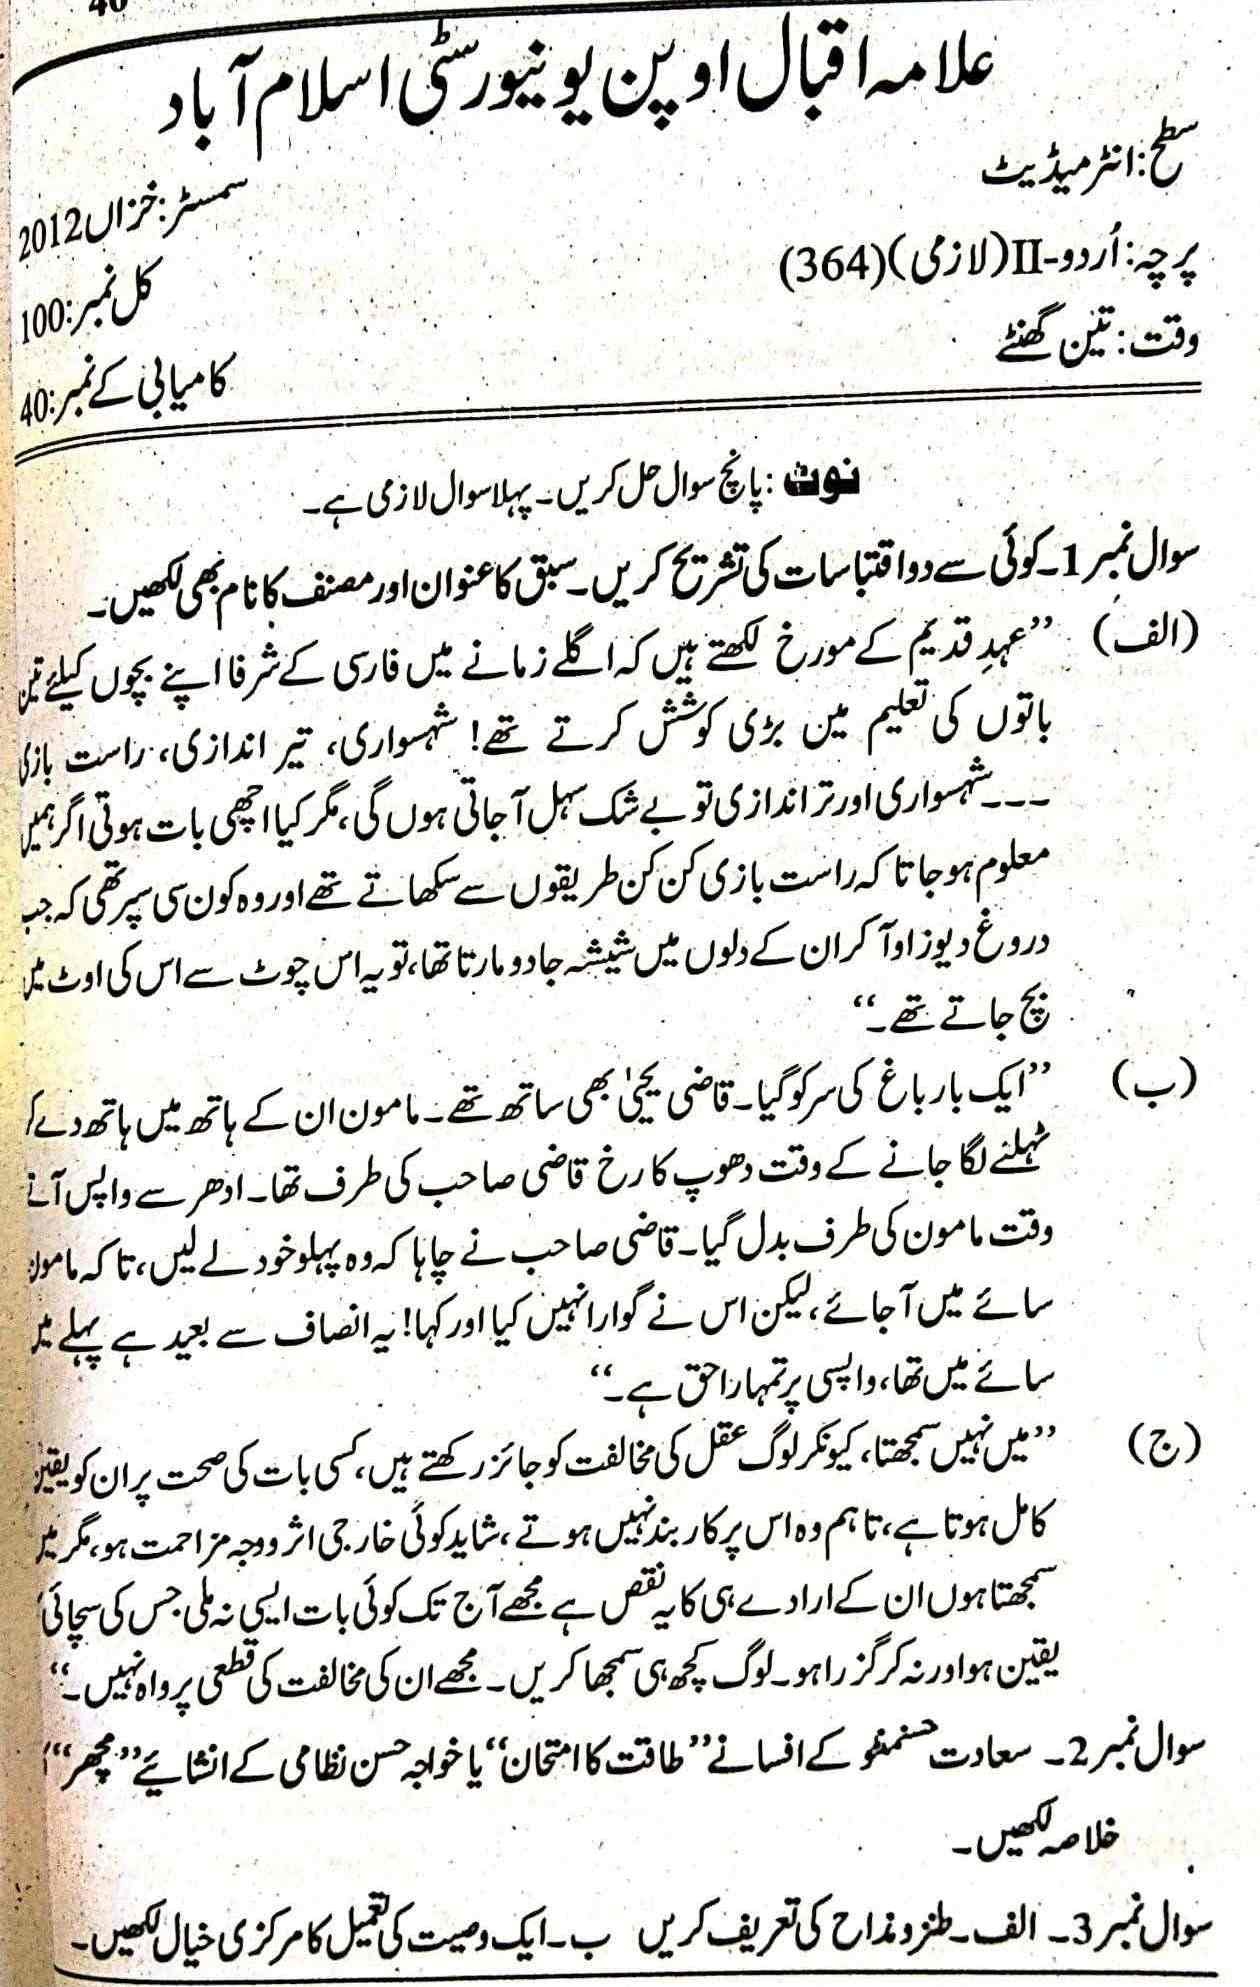 40
علامہ اقبال اوپن یونیورسٹی اسلام آباد
سطح: انٹرمیڈیٹ
سمسٹر: خزاں 2012
پرچہ: اُردو-II (لازمی) (364)
کل نمبر: 100
وقت: تین گھنٹے
کامیابی کے نمبر: 40
نوٹ: پانچ سوال حل کریں۔ پہلا سوال لازمی ہے۔
سوال نمبر 1۔ کوئی سے دو اقتباسات کی تشریح کریں۔ سبق کا عنوان اور مصنف کا نام بھی لکھیں۔
(الف) ”عہدِ قدیم کے مورخ لکھتے ہیں کہ اگلے زمانے میں فارسی کے شرفا اپنے بچوں کیلئے تین
باتوں کی تعلیم مین بڑی کوشش کرتے تھے! شہسواری، تیر اندازی، راست بازی
۔۔۔شہسواری اور تر اندازی تو بے شک سہل آ جاتی ہوں گی، مگر کیا اچھی بات ہوتی اگر ہمیں
معلوم ہو جاتا کہ راست بازی کن کن طریقوں سے سکھاتے تھے اور وہ کون سی سپر تھی کہ جب
دروغ دیوزاد آ کر ان کے دلوں میں شیشہ جادو مارتا تھا، تو یہ اس چوٹ سے اس کی اوٹ میں
بچ جاتے تھے۔“
(ب) ”ایک بار باغ کی سر کو گیا۔ قاضی یحییٰ بھی ساتھ تھے۔ مامون ان کے ہاتھ میں ہاتھ دے
ٹہلنے لگا جانے کے وقت دھوپ کا رخ قاضی صاحب کی طرف تھا۔ ادھر سے واپس آتے
وقت مامون کی طرف بدل گیا۔ قاضی صاحب نے چاہا کہ وہ پہلو خود لے لیں، تا کہ مامون
سائے میں آ جائے، لیکن اس نے گوارا نہیں کیا اور کہا! یہ انصاف سے بعید ہے پہلے میں
سائے میں تھا، واپسی پر تمہارا حق ہے۔“
(ج) ”میں نہیں سمجھتا، کیونکر لوگ عقل کی مخالفت کو جائز رکھتے ہیں، کسی بات کی صحت پر ان کو یقین
کامل ہوتا ہے، تاہم وہ اس پر کاربند نہیں ہوتے، شاید کوئی خارجی اثر ووجہ مزاحمت ہو، مگر میں
سمجھتا ہوں ان کے ارادے ہی کا یہ نقص ہے مجھے آج تک کوئی بات ایسی نہ ملی جس کی سچائی
یقین ہو اور نہ کر گزرا ہو۔ لوگ کچھ ہی سمجھا کریں۔ مجھے ان کی مخالفت کی قطعی پرواہ نہیں۔“
سوال نمبر 2۔ سعادت حسنمنٹو کے افسانے ”طاقت کا امتحان“ یا خواجہ حسن نظامی کے انشائیے ”مچھر“
خلاصہ لکھیں۔
سوال نمبر 3۔ الف۔ طنز و مذاح کی تعریف کریں ب۔ ایک وصیت کی تعمیل کا مرکزی خیال لکھیں۔